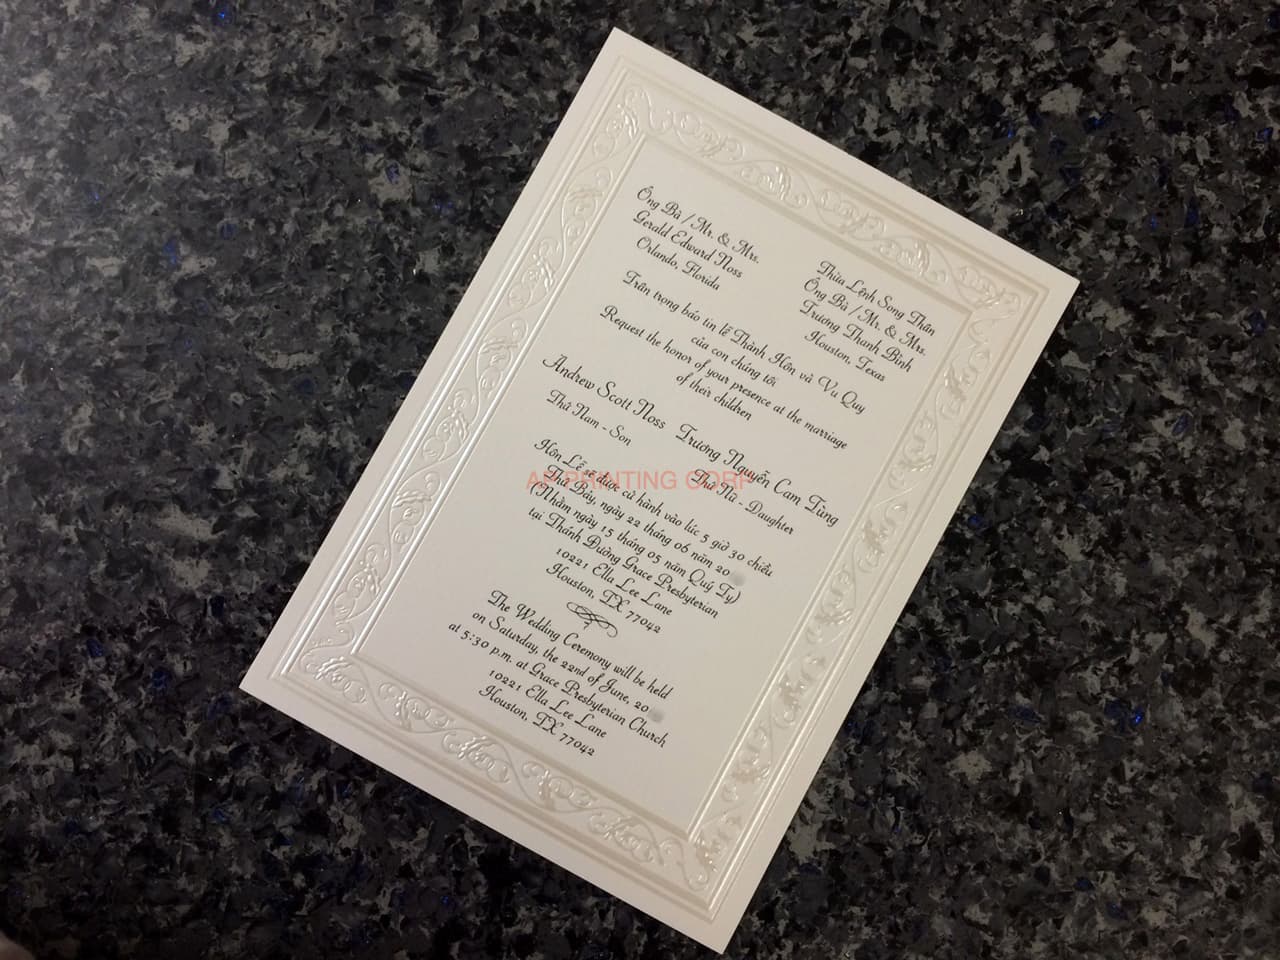 Ông Bà / Mr. & Mrs.
Gerald Edward Noss
Orlando, Florida
Thừa Lệnh Song Thân
Ông Bà / Mr. & Mrs.
Trương Thanh Bình
Houston, Texas
Trân trọng báo tin lễ Thành Hôn và Vu Quy
của con chúng tôi
Request the honor of your presence at the marriage
of their children
Andrew Scott Noss
Thứ Nam - Son
Trương Nguyễn Cam Tùng
Thứ Nữ - Daughter
Hôn Lễ sẽ được cử hành vào lúc 5 giờ 30 chiều
Thứ Bảy, ngày 22 tháng 06 năm 20
(Nhằm ngày 15 tháng 05 năm Quý Tỵ)
tại Thánh Đường Grace Presbyterian
10221 Ella Lee Lane
Houston, TX 77042
The Wedding Ceremony will be held
on Saturday, the 22nd of June, 20
at 5:30 p.m. at Grace Presbyterian Church
10221 Ella Lee Lane
Houston, TX 77042
AP PRINTING CORP